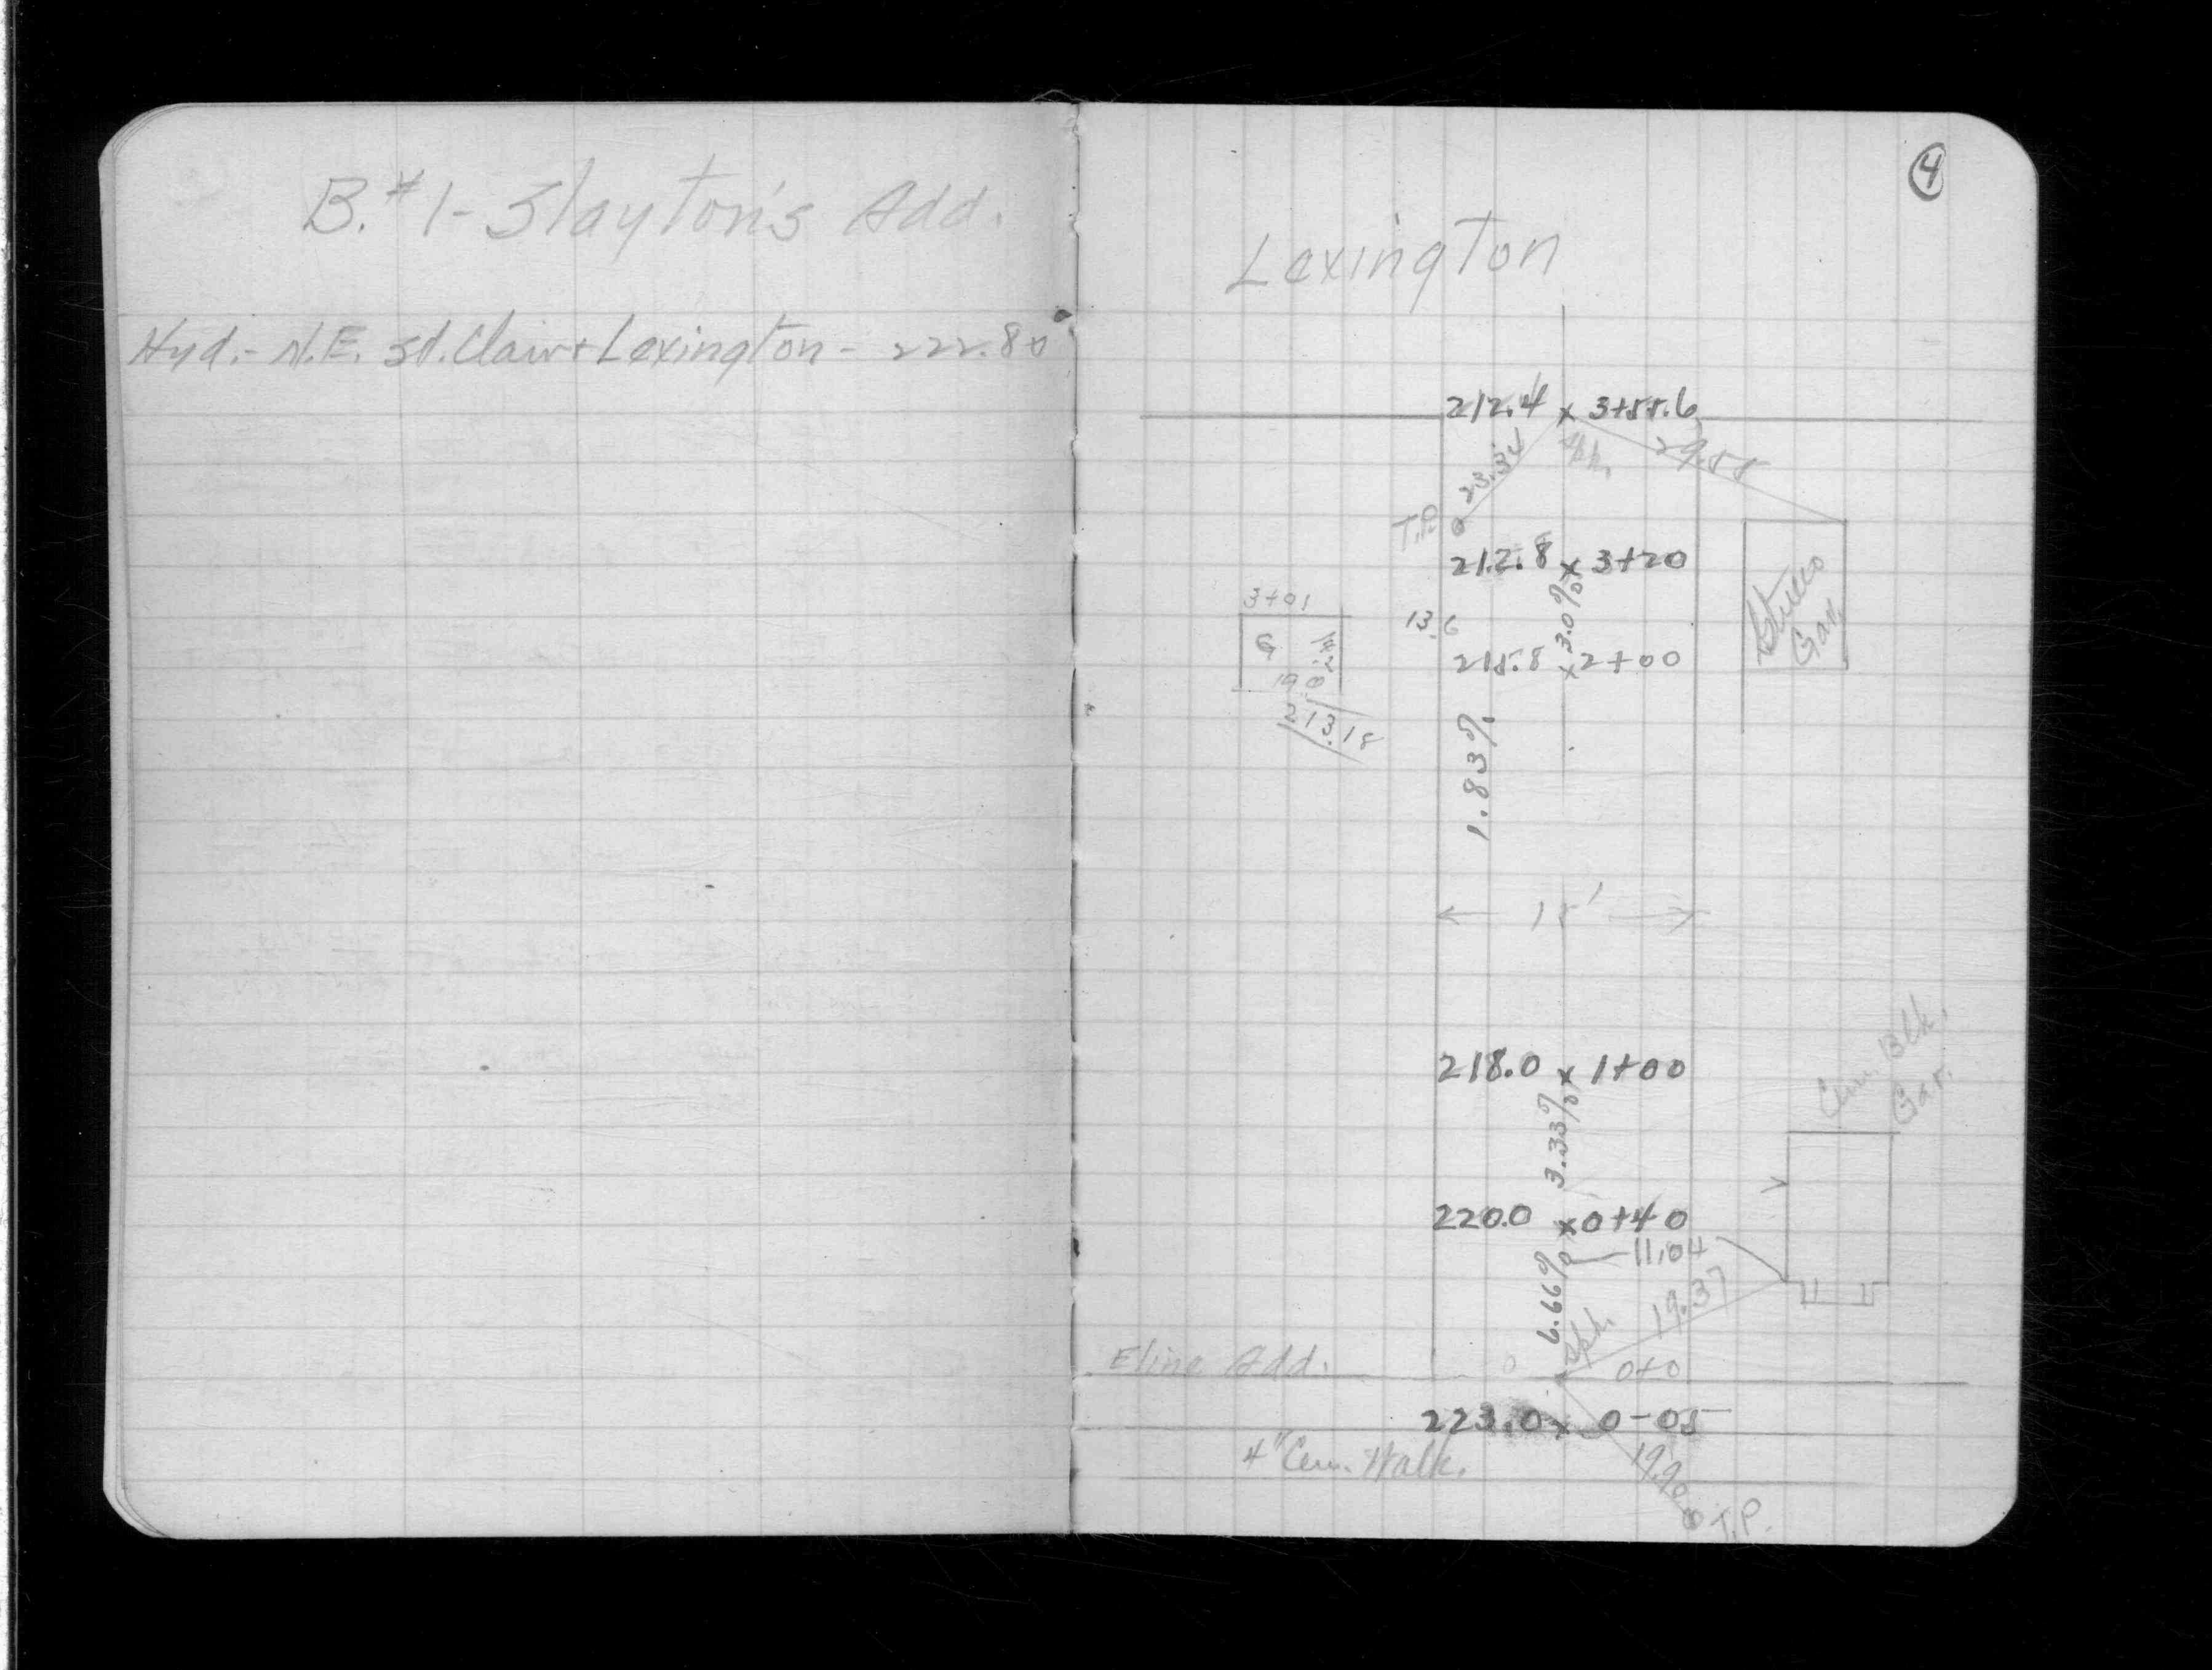 B. #1 - Slayton's Add.
Hyd. - N.E. St. Clair + Lexington - 222.80
4
Lexington
212.4 x 3+55.6
23.34
Spk.
29.55
T.P.
212.8 x 3+20
3+01
13.6
3.0%
Stucco
Gar.
G
215.8 x 2+00
213.18
1.83%
15'
Cem. Blk.
Gar.
218.0 x 1+00
3.33%
220.0 x 0+40
11.04
6.66%
Spk.
19.37
Eline Add.
0+0
223.0 x 0-05
4" Cem. Walk.
19.90
T.P.